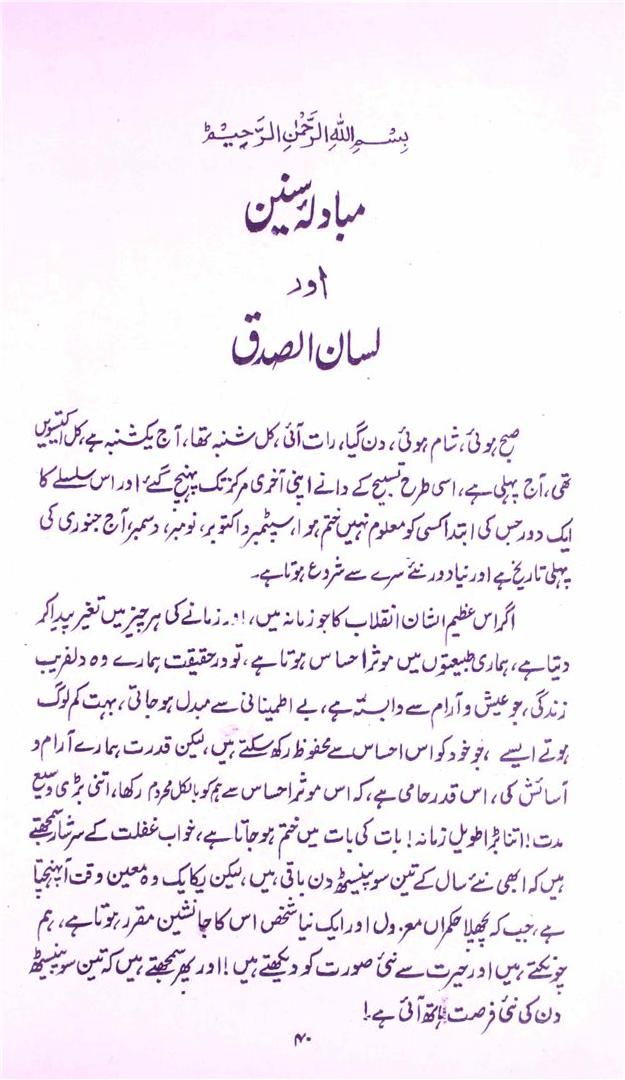 بِسْمِ اللهِ الرَّحْمٰنِ الرَّحِيْمِ
مبادلۂ سنین
اور
لسان الصدق
صبح ہوئی، شام ہوئی، دن گیا، رات آئی، کل شنبہ تھا، آج یکشنبہ ہے، کل اکتیسویں
تھی، آج پہلی ہے، اسی طرح تسبیح کے دانے اپنی آخری مرکز تک پہنچ گئے اور اس سلسلے کا
ایک دور جس کی ابتدا کسی کو معلوم نہیں ختم ہوا، سپٹمبر، اکتوبر، نومبر، دسمبر، آج جنوری کی
پہلی تاریخ ہے اور نیا دور نئے سرے سے شروع ہوتا ہے۔
اگر اس عظیم الشان انقلاب کا جو زمانہ میں، اور زمانے کی ہر چیز میں تغیر پیدا کر
دیتا ہے، ہماری طبیعتوں میں موثر احساس ہوتا ہے، تو در حقیقت ہمارے وہ دلفریب
زندگی، جو عیش و آرام سے وابستہ ہے، بے اطمینانی سے مبدل ہو جاتی، بہت کم لوگ
ہوتے ایسے، جو خود کو اس احساس سے محفوظ رکھ سکتے ہیں، لیکن قدرت ہمارے آرام و
آسائش کی، اس قدر حامی ہے، کہ اس موثر احساس سے ہم کو بالکل محروم رکھا، اتنی بڑی وسیع
مدت! اتنا بڑا طویل زمانہ! بات کی بات میں ختم ہو جاتا ہے، خواب غفلت کے سرشار سمجھتے
ہیں کہ ابھی نئے سال کے تین سو پینسٹھ دن باقی ہیں، لیکن یکایک وہ معین وقت آ پہنچتا
ہے، جب کہ پچھلا حکمراں معزول اور ایک نیا شخص اس کا جانشین مقرر ہوتا ہے، ہم
چونکتے ہیں اور حیرت سے نئی صورت کو دیکھتے ہیں! اور پھر سمجھتے ہیں کہ تین سو پینسٹھ
دن کی نئی فرصت ہاتھ آئی ہے!
۴۰